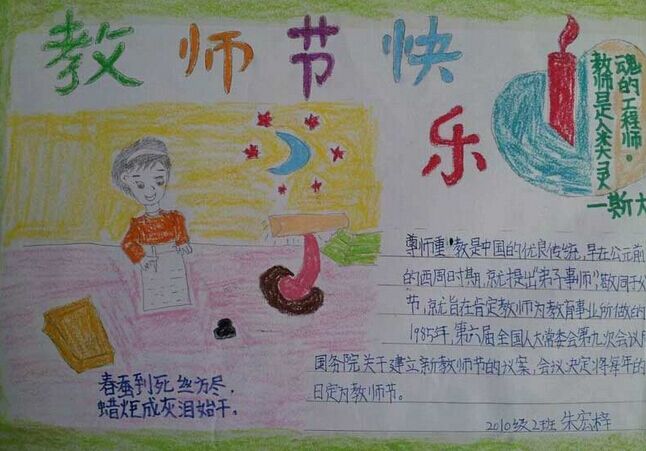 教师节快
乐
教师是人类灵
魂的工程师。
—斯大
尊师重教是中国的优良传统,早在公元前
的西周时期,就提出"弟子事师",敬同于父
节,就旨在肯定教师为教育事业所做的
1985年,第六届全国人大常委会第九次会议
国务院关于建立新教师节的议案,会议决定将每年的
日定为教师节。
春蚕到死丝方尽,
蜡炬成灰泪始干。
2010级2班 朱宏梓